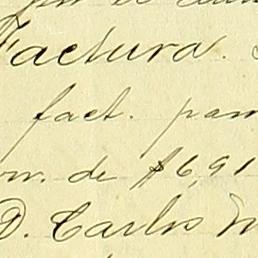 Factura.
fact. pam
de $6,91
D. Carlos M